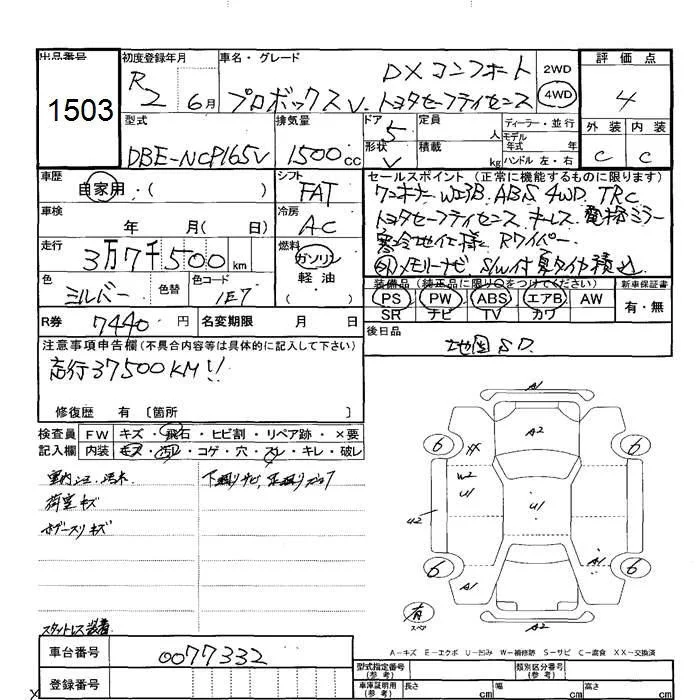 出品番号 初度登録年月 車名・グレード 評価点
1503 R2 6月 DXコンフォート 2WD 4WD 4
プロボックスV. トヨタセーフティセンス
型式 排気量 ドア 5 定員 人 ディーラー・並行 外装 内装
DBE-NCP165V 1500cc 形状 V 積載 kg モデル年式 年 ハンドル 左・右 C C
車歴 自家用・( ) シフト FAT セールスポイント(正常に機能するものに限ります)
ワンオーナー WエアB. ABS 4WD. TRC
車検 年 月( 日) 冷房 AC トヨタセーフティセンス キーレス 電格ミラー
走行 3万7千500km 燃料 ガソリン 軽油 寒冷地仕様 Rワイパー
メモリーナビ S/W付夏タイヤ積込
色 シルバー 色替 色コード 1E7 ( ) 装備品(純正品に限り○をつけてください) 新車保証書
PS PW ABS エアB AW 有・無
SR ナビ TV カワ
R券 7440円 名変期限 月 日 後日品
地図SD
注意事項申告欄(不具合内容等は具体的に記入して下さい)
走行37500KM!!
修復歴 有 〔箇所 〕
検査員 FW キズ・飛石・ヒビ割・リペア跡・×要
記入欄 内装 キズ・汚れ・コゲ・穴・スレ・キレ・破レ
荷室キズ
スタットレス装着
A1
A2
6 XX 6
W2
U1 U1
U2
6 A1 A1 6
有 スペア
A2
A-キズ E-エクボ U-凹み W-補修跡 S-サビ C-腐食 XX-交換済
車台番号 0077332
型式指定番号(参考) 類別区分番号(参考)
登録番号 車庫証明用(参考) 長さ cm 幅 cm 高さ cm